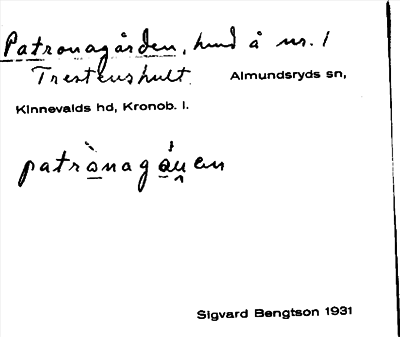 Patronagården, hmd å nr. 1
Trestenshult. Almundsryds sn,
Kinnevalds hd, Kronob. l.
patrònagáu̯en
Sigvard Bengtson 1931